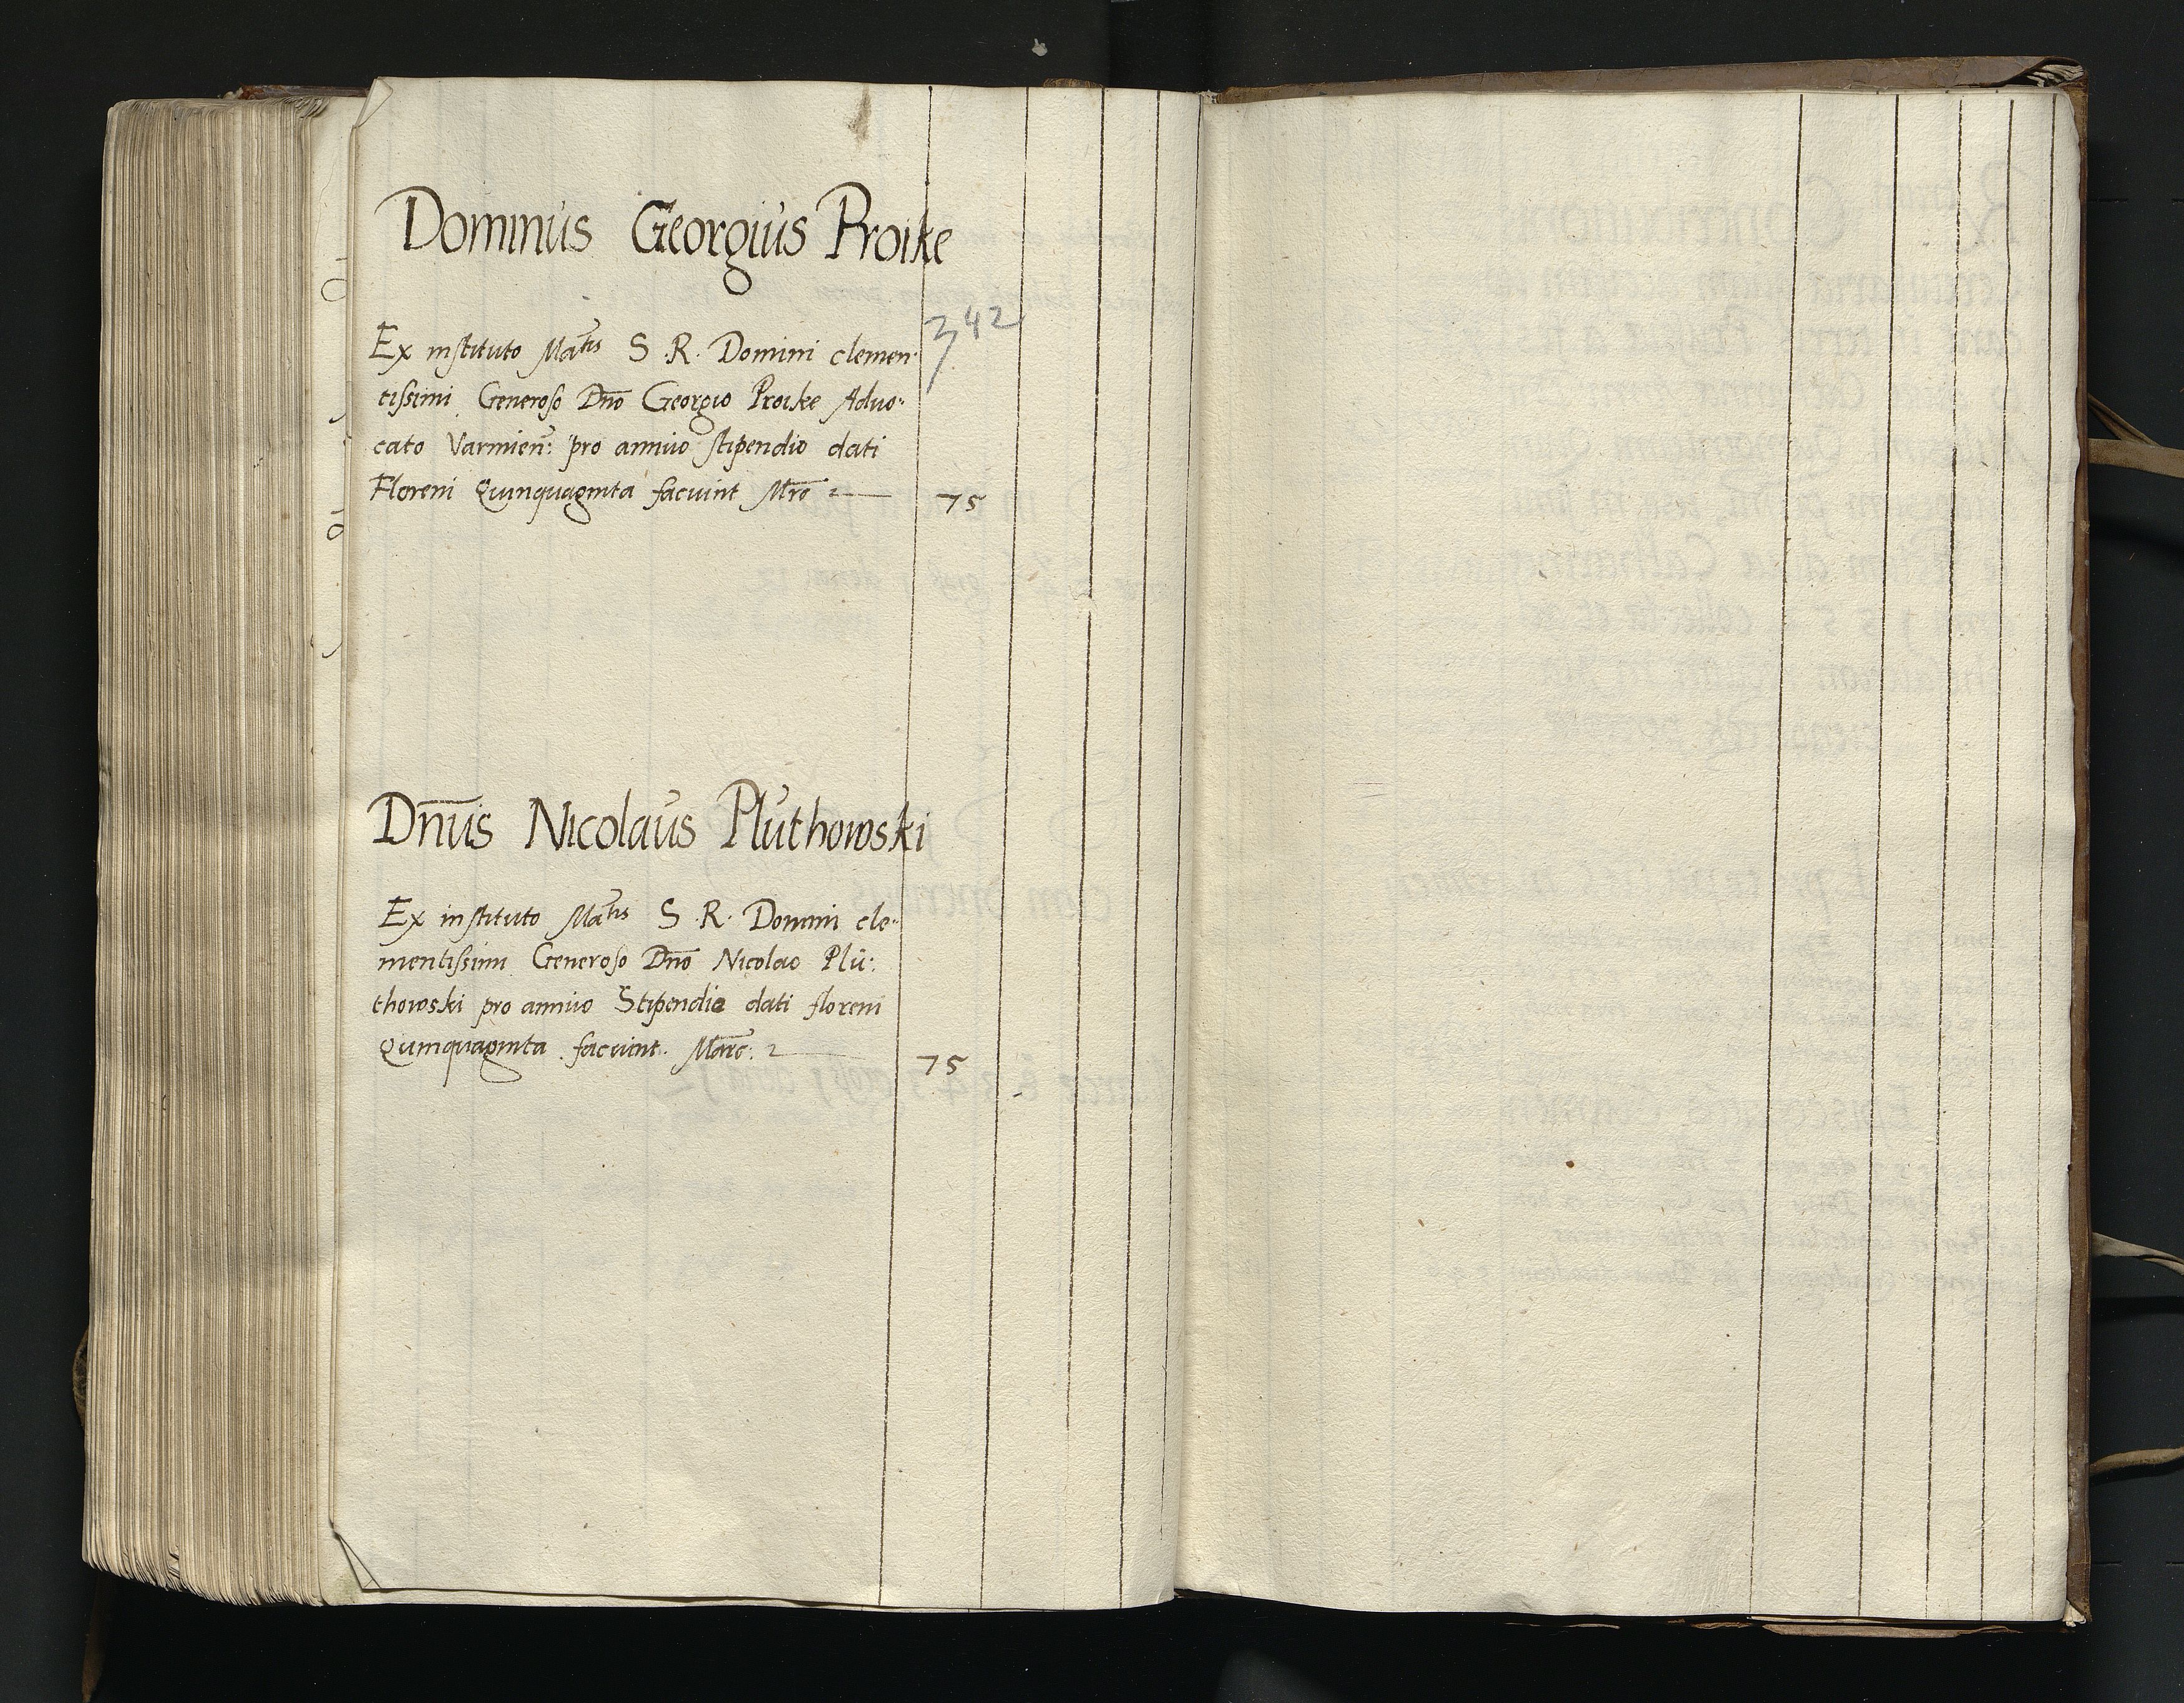 Dominus Georgius Proike
342
Ex instituto Matis S. R. Domini clemen:
tissimi Generoso Dno Georgio Proike Aduo:
cato Varmien: pro annuo stipendio dati
Floreni Quinquaginta faciunt Mrc 75
Dnus Nicolaus Pluthowski
Ex instituto Matis S. R. Domini cle:
mentissimi Generoso Dno Nicolao Plu:
thowski pro annuo Stipendio dati floreni
Quinquaginta faciunt. Marc: 75